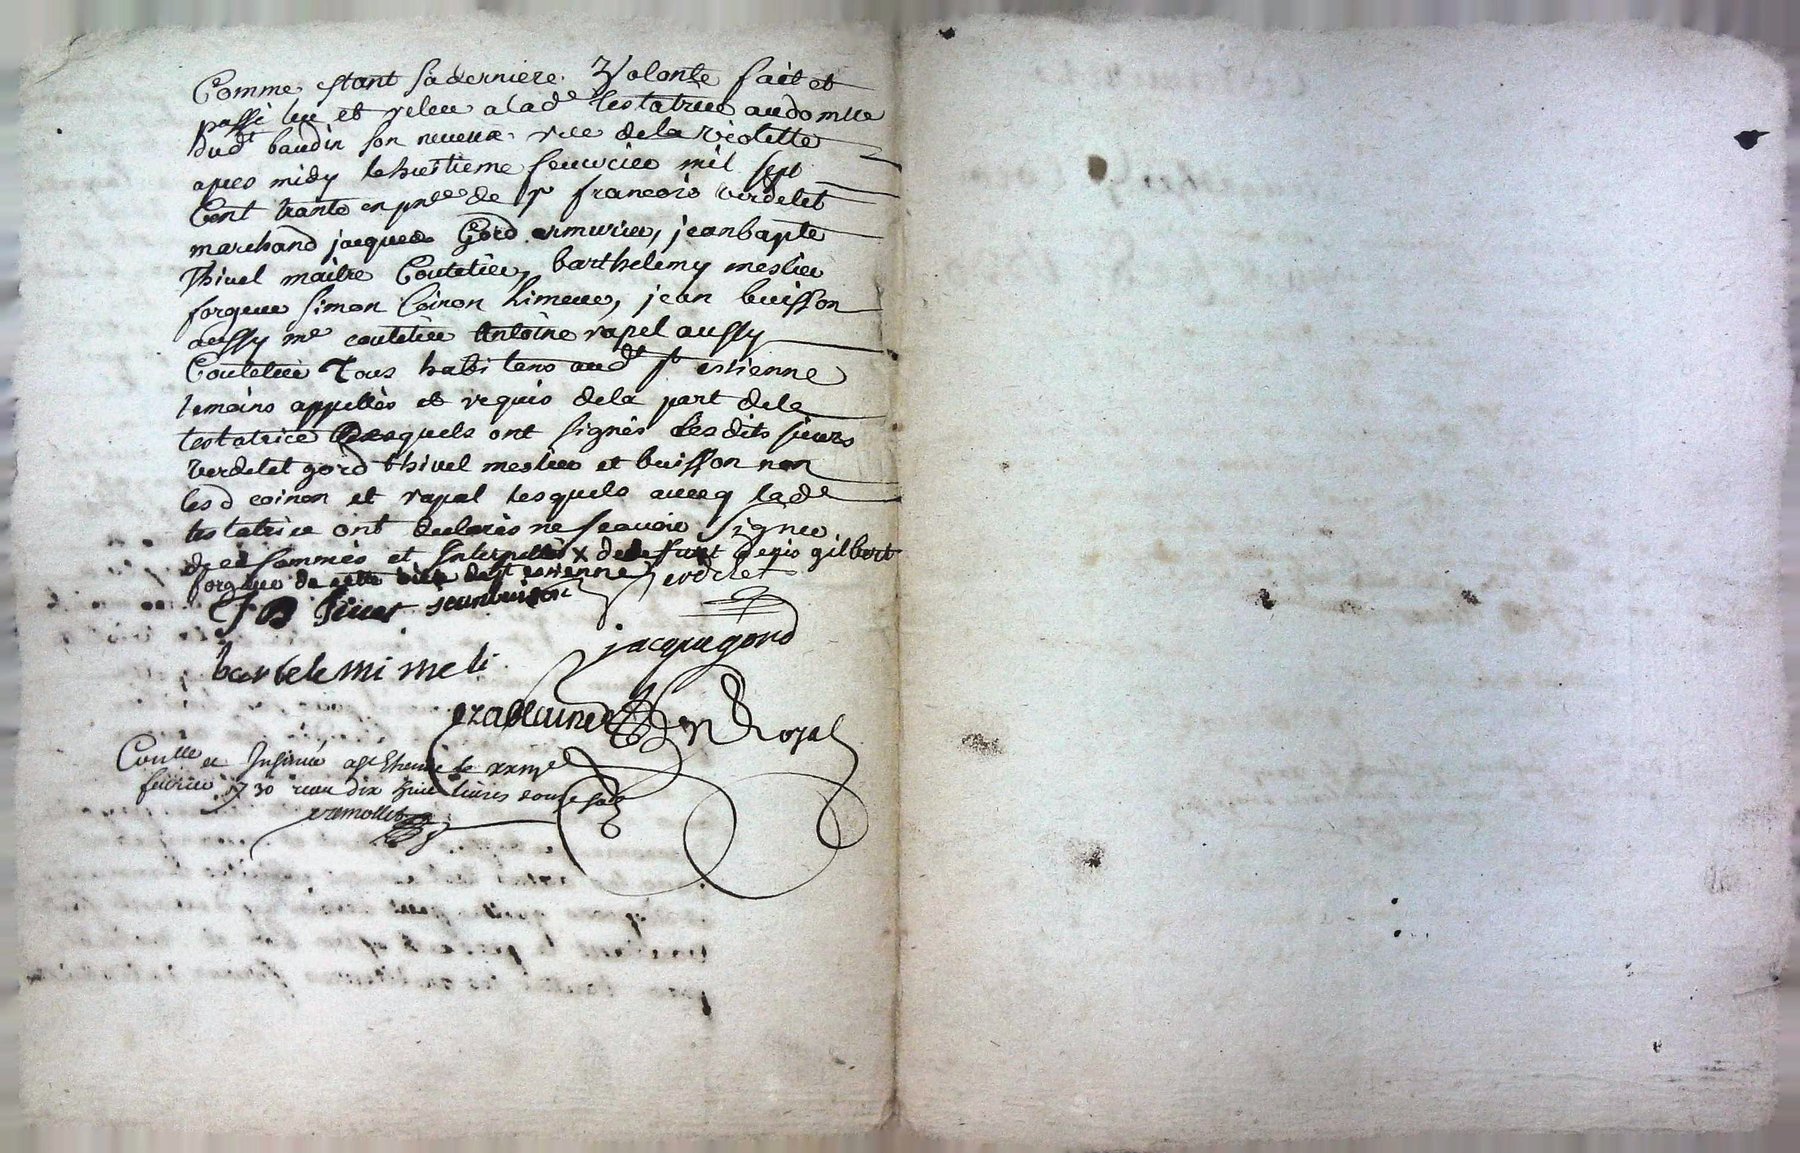 Comme estant sa derniere Volonté fait et
passé leu et releu a lad.e testatrice au domille
dud.t baudin son neveux rue de la violette
apres midy le huitieme feuvrier mil sept
Cent trante en pn.ce de s.r francois verdelet
marchand jacques Gord armurier, jean bapte
Thivel maitre Coutelier, barthelemy meslier
forgeur simon Coinon limeur, jean buisson
aussy m.e coutelier Antoine rapel aussy
Coutelier Tous habitans aud.t s.t estienne
temoins appellés et requis de la part de la
testatrice lesquels ont signés lesdits sieurs
verdelet gord thivel meslier et buisson non
lesd coinon et rapel lesquels avecq lad.e
testatrice ont declarés ne scavoir signer
de ce sommés et Interpellés x denis gilbert
forgeur de cette ville de st estienne verdelet
J B Tivel jean buison
jacque gord
bartelemi meli
Royal
Con.lle et Insinué a s.t Ehenne le
fevrier 1730 receu dix huit livres douze sols
ramollet